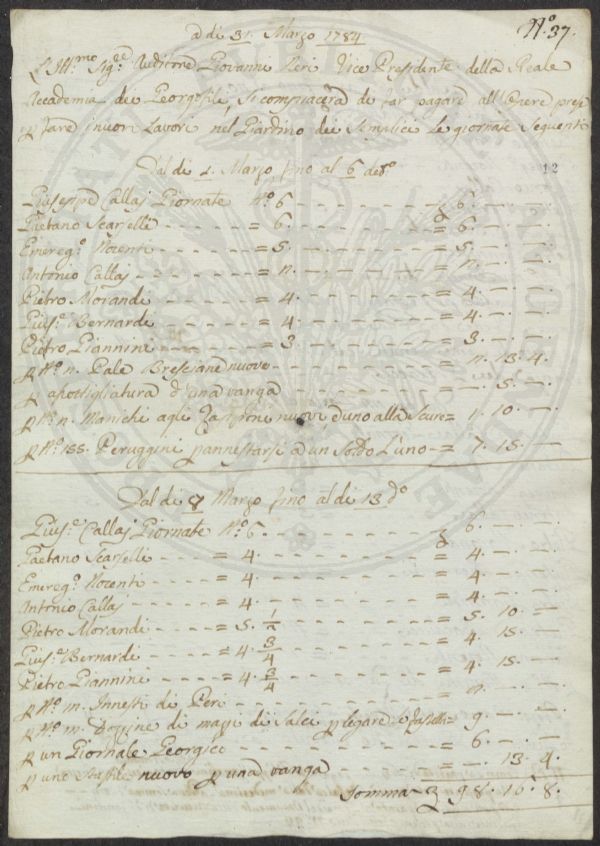 N.º 37.
a di 31. Marzo 1784
L'Ill.mo Sig.e Auditore Giovanni Neri Vice Presidente della Reale
Accademia dei Georgofili, si compiacerà di far pagare all'Opere prese
p fare i nuovi Lavori nel Giardino dei Semplici Le giornate Sequenti
12
Dal di 1. Marzo fino al 6 do
Giuseppe Callaj Giornate Nº 6 6. — —
Gaetano Scarselli = 6. = 6. — —
Emereg.º Nocenti = 5. = 5. — —
Antonio Callaj = n. = n. — —
Pietro Morandi = 4. = 4. — —
Gius.e Bernardi = 4. = 4. — —
Pietro Giannini = 3 = 3. — —
p Nº n. Pale Bresciane nuove n. 13. 4.
p una vanga —. 5. —
p Nº n. Manichi agli Zapponi nuovi e uno alla Scure = 1. 10. —
p Nº 155. Peruggini p annestarsi a un Soldo L'uno = 7. 15. —
Dal di 8 Marzo fino al di 13 dº
Gius.e Callaj Giornate Nº 6. 6. — —
Gaetano Scarselli = 4. = 4. — —
Emereg.º Nocenti = 4. = 4. — —
Antonio Callaj = 4. = 4. — —
Pietro Morandi = 5. 1/n = 5. 10. —
Gius.e Bernardi = 4. 3/4 = 4. 15. —
Pietro Giannini = 4. 3/4 = 4. 15. —
p Nº Innesti di Peri = n. — —
p Nº Dozzine di mazzi di Salci p legare = 9. — —
p un Giornale Georgico = 6. — —
p uno nuovo p una vanga = —. 13. 4.
Somma 98. 16. 8.